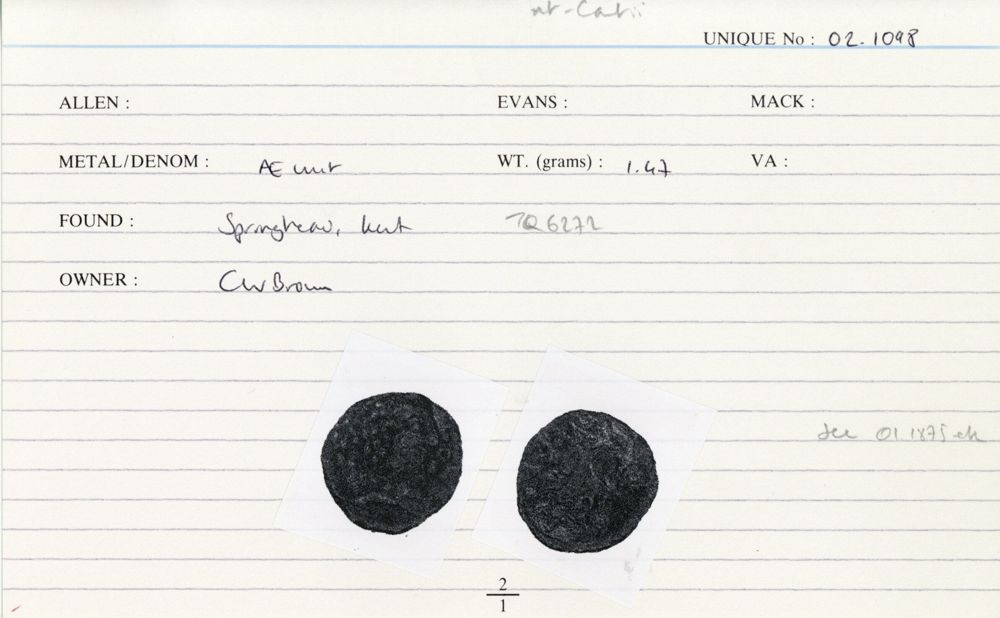 UNIQUE No : 02.1098
ALLEN : EVANS : MACK :
METAL/DENOM : Æ unit WT. (grams) : 1.47 VA :
FOUND : Springhead, Kent TQ 6272
OWNER : CW Brown
see 01.1875 etc
2
1